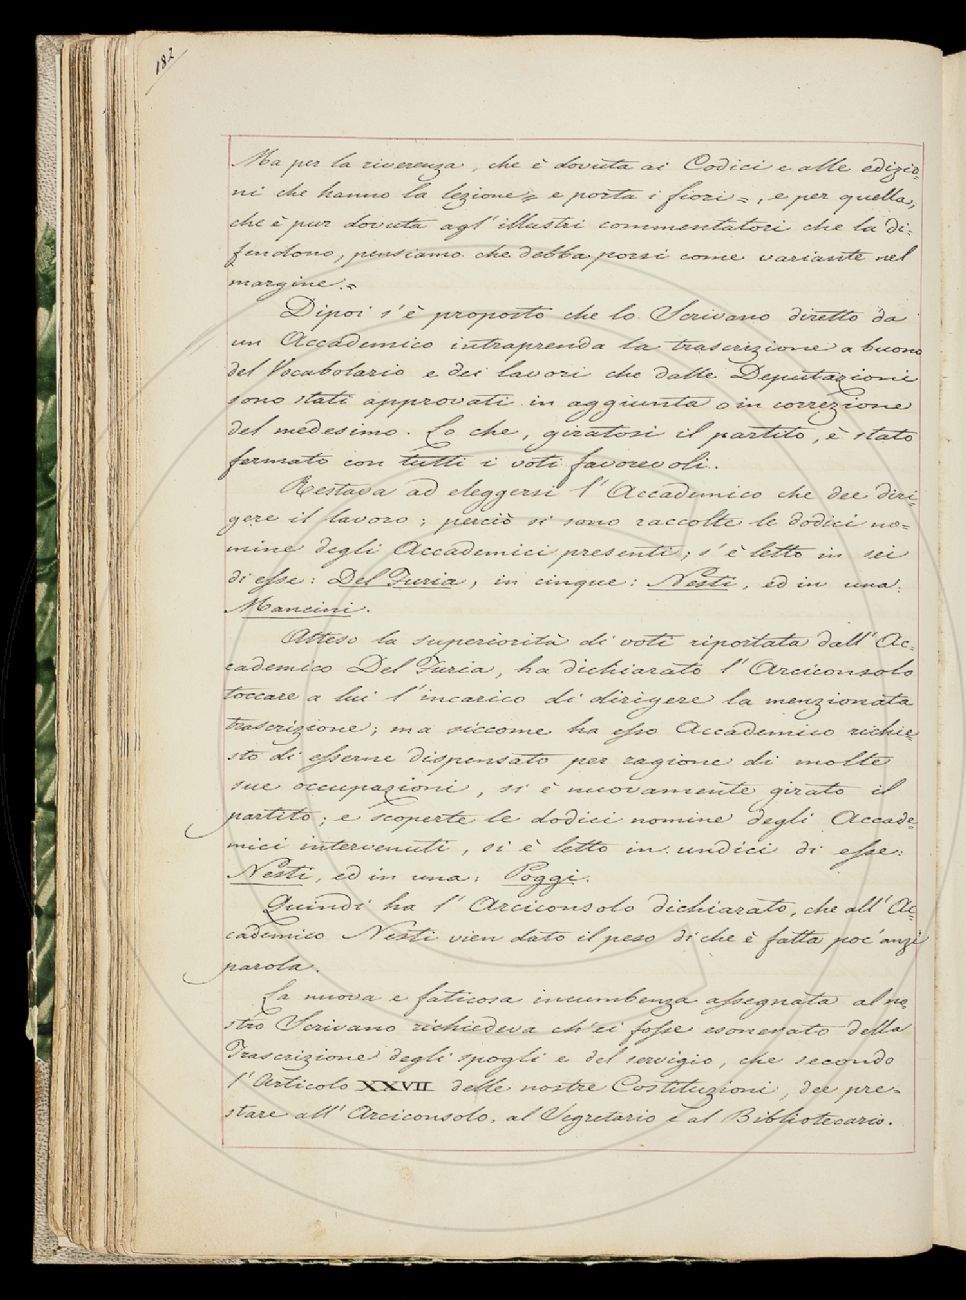 182
Ma per la riverenza, che è dovuta ai Codici e alle edizio=
ni che hanno la lezione = e porta i fiori =, e per quella,
che è pur dovuta agl' illustri commentatori che la di=
fendono, pensiamo che debba porsi come variante nel
margine. =
Dipoi s'è proposto che lo Scrivano diretto da
un Accademico intraprenda la trascrizione a buono
del Vocabolario e dei lavori che dalle Deputazioni
sono stati approvati in aggiunta o in correzione
del medesimo. Lo che, giratosi il partito, è stato
fermato con tutti i voti favorevoli.
Restava ad eleggersi l' Accademico che dee diri=
gere il lavoro; perciò si sono raccolte le dodici no=
mine degli Accademici presenti; s' è letto in sei
di esse: Del Furia, in cinque: Nesti, ed in una:
Mancini.
Atteso la superiorità di voti riportata dall' Ac=
cademico Del Furia, ha dichiarato l' Arciconsolo
toccare a lui l' incarico di dirigere la menzionata
trascrizione; ma siccome ha esso Accademico richie=
sto di esserne dispensato per ragione di molte
sue occupazioni, si è nuovamente girato il
partito; e scoperte le dodici nomine degli Accade=
mici intervenuti, si è letto in undici di esse:
Nesti, ed in una: Poggi.
Quindi ha l' Arciconsolo dichiarato, che all' Ac=
cademico Nesti vien dato il peso di che è fatta poc' anzi
parola.
La nuova e faticosa incumbenza assegnata al no=
stro Scrivano richiedeva ch' ei fosse esonerato della
Trascrizione degli spogli e del servigio, che secondo
l' Articolo XXVII delle nostre Costituzioni, dee pre=
stare all' Arciconsolo, al Segretario e al Bibliotecario.